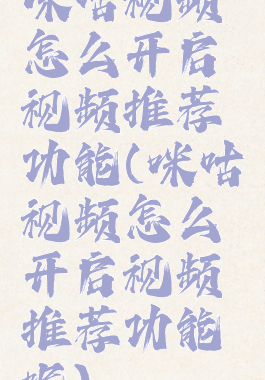 咪咕视频
怎么开启
视频推荐
功能(咪咕
视频怎么
开启视频
推荐功能